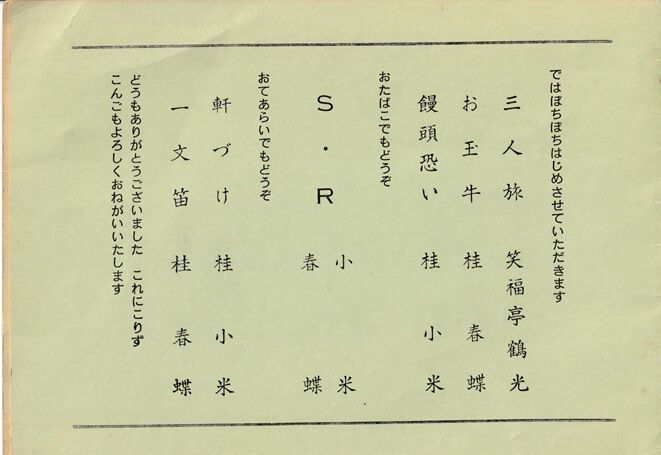 ではぼちぼちはじめさせていただきます
三人旅 笑福亭鶴光
お玉牛 桂春蝶
饅頭恐い 桂小米
おたばこでもどうぞ
S・R 小米
春蝶
おてあらいでもどうぞ
軒づけ 桂小米
一文笛 桂春蝶
どうもありがとうございました これにこりず
こんごもよろしくおねがいいたします